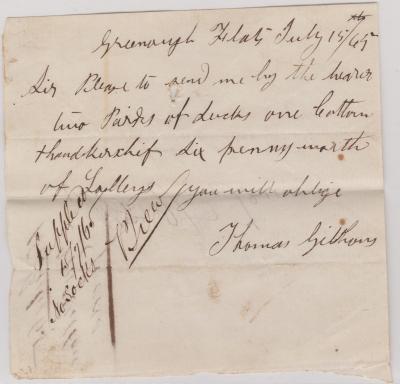 Greenough Flats July 15th/65
Sir Please to send me by the bearer
two Pairs of Socks one Cotton
Handkerchief Six penny worth
of Lolleys & you will oblige
Thomas Gibbons
Supplied
No socks